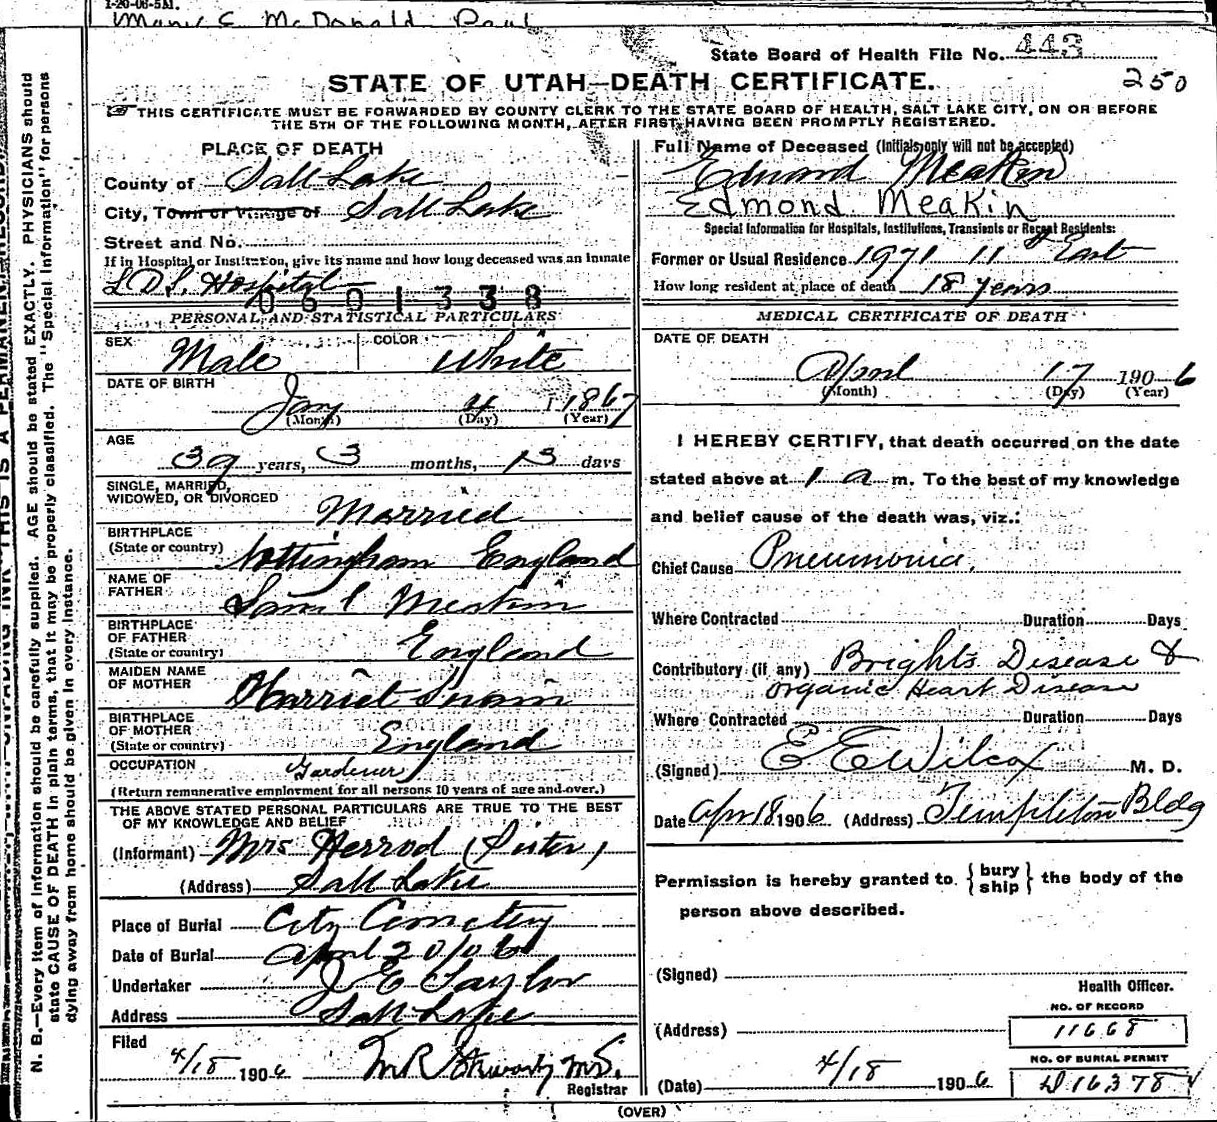 1-20-06-5M.
Mary E McDonald Paul
State Board of Health File No. 443
STATE OF UTAH—DEATH CERTIFICATE.
250
THIS CERTIFICATE MUST BE FORWARDED BY COUNTY CLERK TO THE STATE BOARD OF HEALTH, SALT LAKE CITY, ON OR BEFORE
THE 5TH OF THE FOLLOWING MONTH, AFTER FIRST HAVING BEEN PROMPTLY REGISTERED.
N. B.—Every item of information should be carefully supplied. AGE should be stated EXACTLY. PHYSICIANS should
state CAUSE OF DEATH in plain terms, that it may be properly classified. The "Special Information" for persons
dying away from home should be given in every instance.
PLACE OF DEATH
County of Salt Lake
City, Town or Village of Salt Lake
Street and No.
If in Hospital or Institution, give its name and how long deceased was an inmate
L.D.S. Hospital
0601338
PERSONAL AND STATISTICAL PARTICULARS
SEX Male COLOR White
DATE OF BIRTH
Jany 4 1867
(Month) (Day) (Year)
AGE
39 years, 3 months, 13 days
SINGLE, MARRIED,
WIDOWED, OR DIVORCED
Married
BIRTHPLACE
(State or country) Nottingham England
NAME OF
FATHER Saml Meakin
BIRTHPLACE
OF FATHER
(State or country) England
MAIDEN NAME
OF MOTHER Harriet
BIRTHPLACE
OF MOTHER
(State or country) England
OCCUPATION Gardener
(Return remunerative employment for all persons 10 years of age and over.)
THE ABOVE STATED PERSONAL PARTICULARS ARE TRUE TO THE BEST
OF MY KNOWLEDGE AND BELIEF
(Informant) Mrs Herrod (Sister)
(Address) Salt Lake
Place of Burial City Cemetery
Date of Burial April 20/06
Undertaker J E Taylor
Address Salt Lake
Filed
4/18 1906 M R
Registrar
Full Name of Deceased (Initials only will not be accepted)
Edward Meakin
Edmond Meakin
Special Information for Hospitals, Institutions, Transients or Recent Residents:
Former or Usual Residence 1971 11th East
How long resident at place of death 18 years
MEDICAL CERTIFICATE OF DEATH
DATE OF DEATH
April 17 1906
(Month) (Day) (Year)
I HEREBY CERTIFY, that death occurred on the date
stated above at 1 a m. To the best of my knowledge
and belief cause of the death was, viz.:
Chief Cause Pneumonia.
Where Contracted Duration Days
Contributory (if any) Brights Disease &
Organic Heart Disease
Where Contracted Duration Days
(Signed) E E Wilcox M. D.
Date Apr 18 1906 (Address) Templeton Bldg
Permission is hereby granted to { bury ship } the body of the
person above described.
(Signed)
Health Officer.
NO. OF RECORD
(Address) 11668
NO. OF BURIAL PERMIT
(Date) 4/18 1906 D 16378
(OVER)